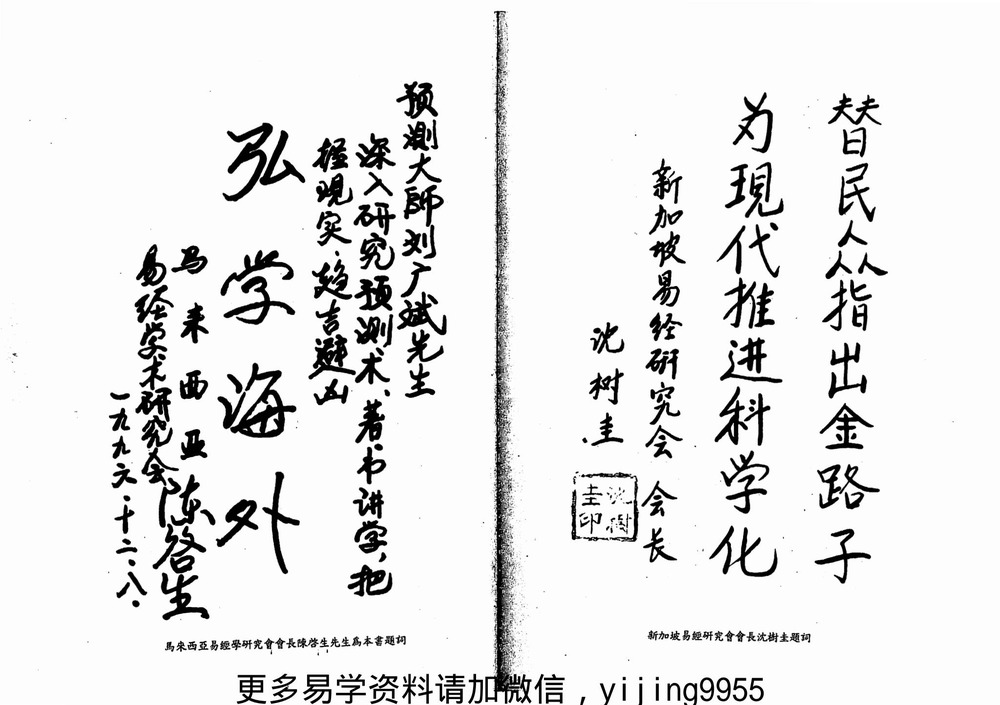 替民众指出金路子
为現代推进科学化
新加坡易经研究会 会长
沈树圭
沈樹圭印
新加坡易經研究會會長沈樹圭題詞
预測大师刘广斌先生
深入研究预测术、著书讲学,把
握現实、趋吉避凶
弘学海外
马来西亚
易经学术研究会
陈启生
一九九六.十二.八.
馬來西亞易經學研究會會長陳啓生先生爲本書題詞
更多易学资料请加微信，yijing9955